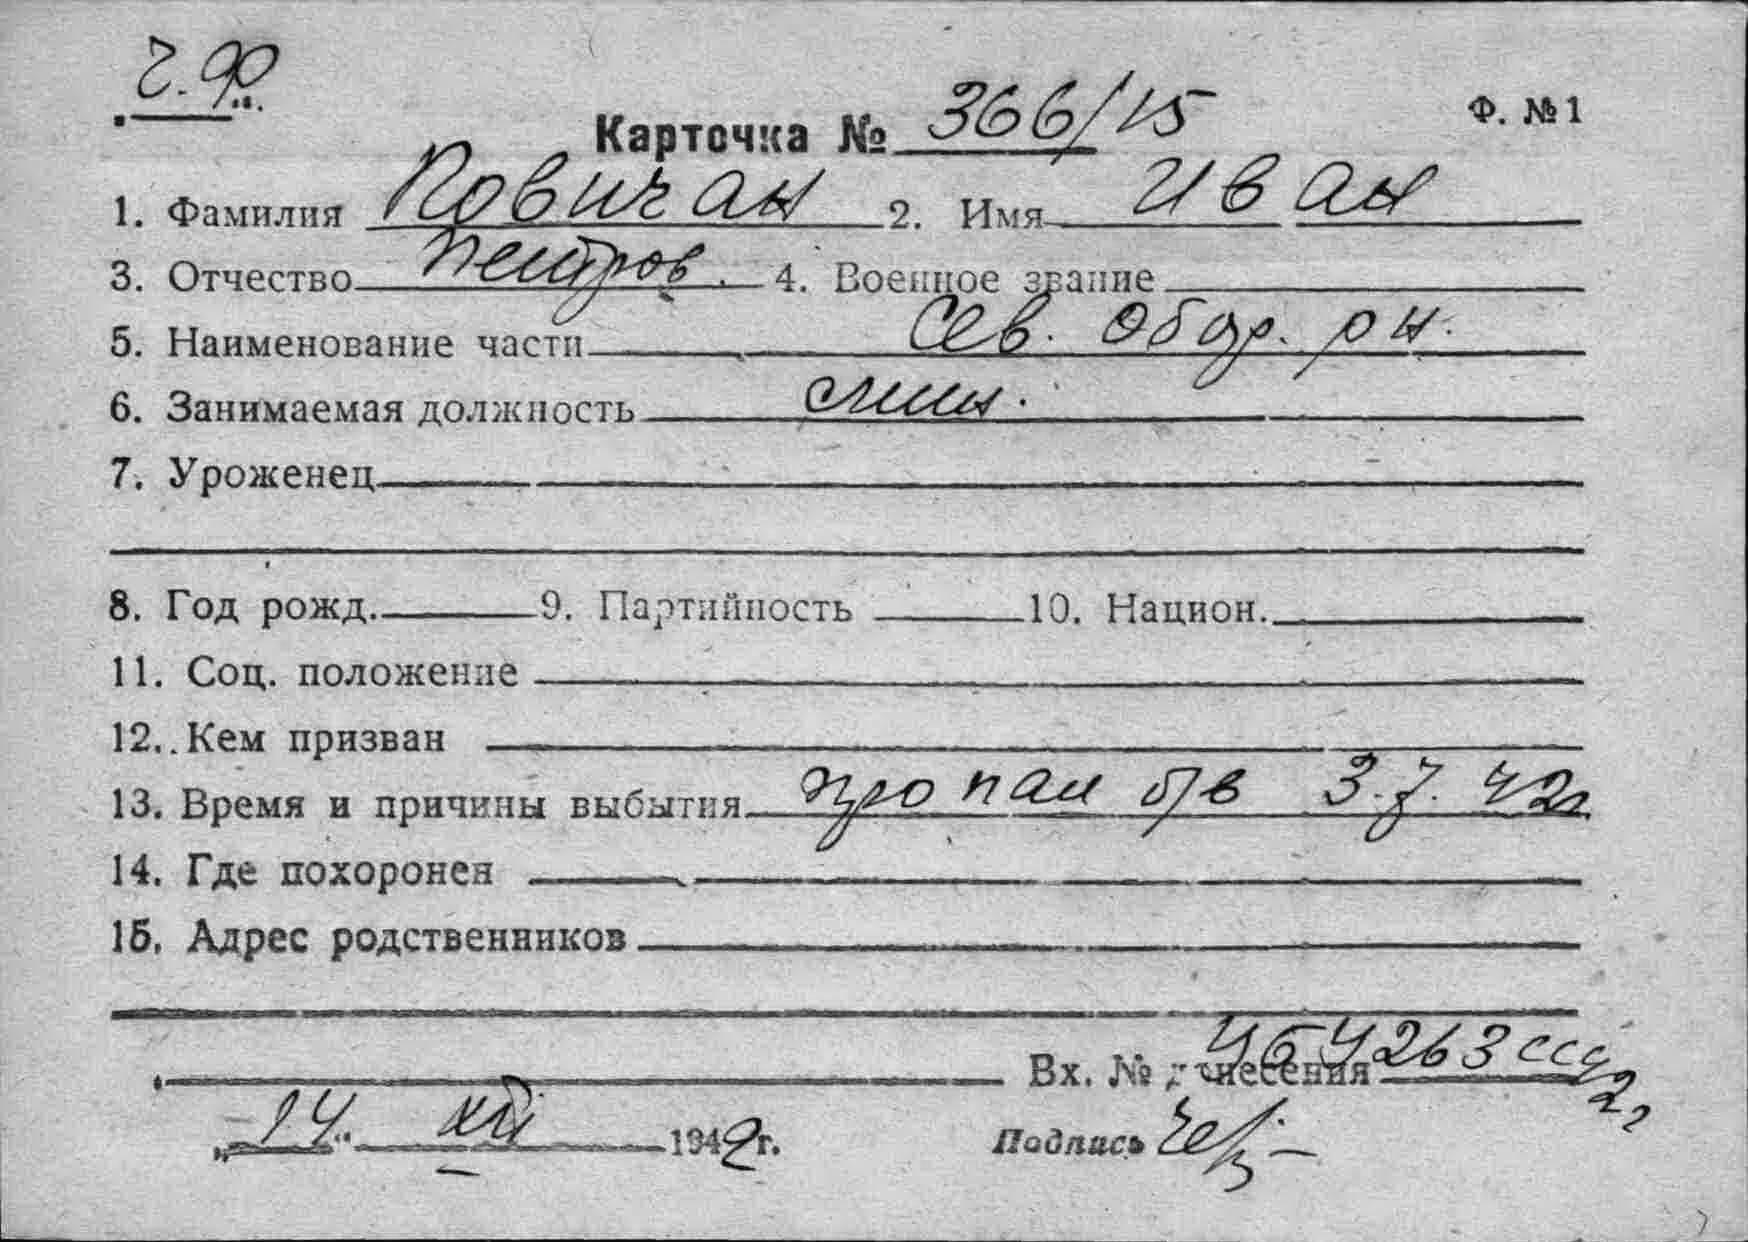 Ч.Ф.
Карточка № 366/15 Ф. № 1
1. Фамилия Повичан 2. Имя Иван
3. Отчество Петров. 4. Военное звание
5. Наименование части Сев. обор. рн.
6. Занимаемая должность
7. Уроженец
8. Год рожд. 9. Партийность 10. Национ.
11. Соц. положение
12. Кем призван
13. Время и причины выбытия пропал б/в 3.7.42г
14. Где похоронен
15. Адрес родственников
Вх. № донесения
„14" XII 1942г. Подпись